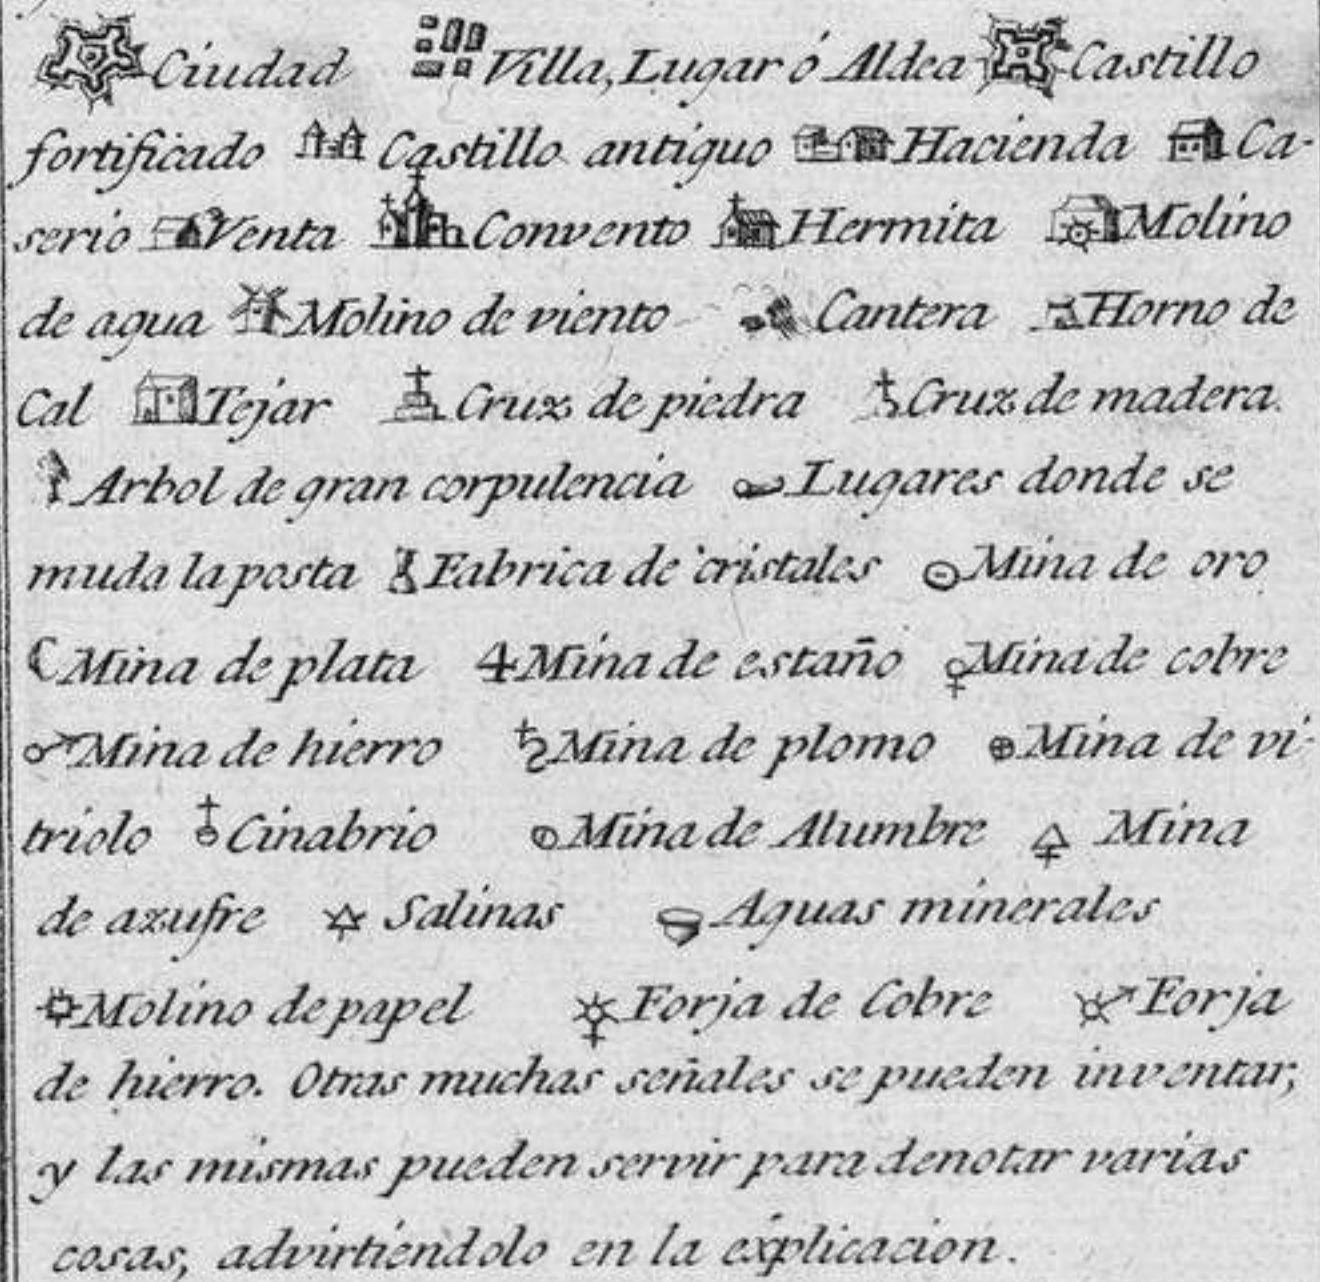 Ciudad Villa, Lugar ó Aldea Castillo
fortificado Castillo antiguo Hacienda Ca-
serio Venta Convento Hermita Molino
de agua Molino de viento Cantera Horno de
Cal Tejar Cruz de piedra Cruz de madera.
Arbol de gran corpulencia Lugares donde se
muda la posta Fabrica de cristales Mina de oro
Mina de plata Mina de estaño Mina de cobre
Mina de hierro Mina de plomo Mina de vi-
triolo Cinabrio Mina de Alumbre Mina
de azufre Salinas Aguas minerales
Molino de papel Forja de Cobre Forja
de hierro. Otras muchas señales se pueden inventar;
y las mismas pueden servir para denotar varias
cosas, advirtiendolo en la explicacion.